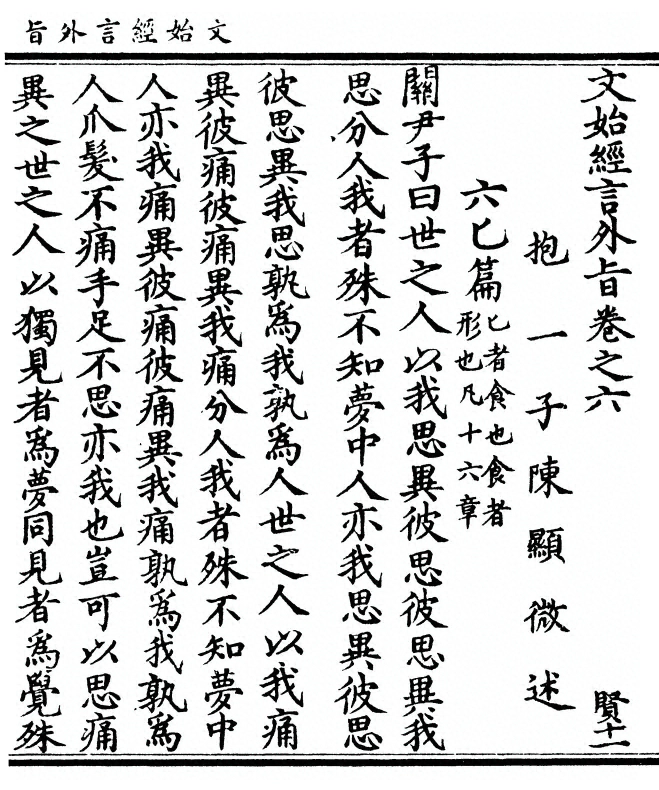 文始經言外旨
文始經言外旨卷之六
賢十一
抱一子陳顯微述
六匕篇匕者食也食者
形也凡十六章
關尹子曰世之人以我思異彼思彼思異我
思分人我者殊不知夢中人亦我思異彼思
彼思異我思孰為我孰為人世之人以我痛
異彼痛彼痛異我痛分人我者殊不知夢中
人亦我痛異彼痛彼痛異我痛孰為我孰為
人爪髮不痛手足不思亦我也豈可以思痛
異之世之人以獨見者為夢同見者為覺殊